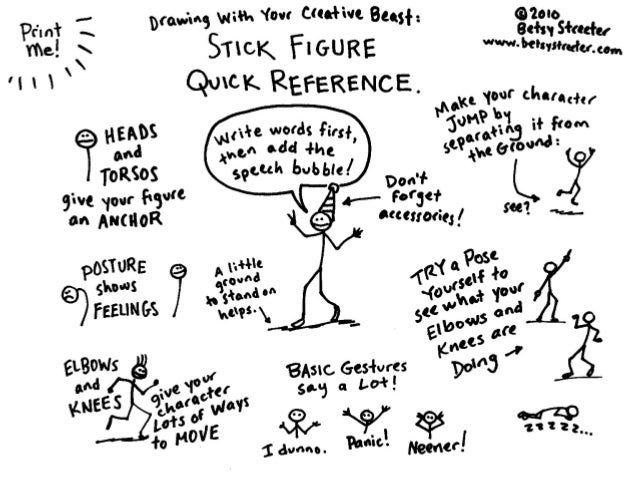 Print
Me!
Drawing With Your Creative Beast:
STICK FIGURE
QUICK REFERENCE.
©2010
Betsy Streeter
www.betsystreeter.com
HEADS
and
TORSOS
give your figure
an ANCHOR
Write words first,
then add the
speech bubble!
Don't
forget
accessories!
Make your character
JUMP by
separating it from
the Ground:
see?
POSTURE
shows
FEELINGS
A little
ground
to stand on
helps.
TRY a Pose
Yourself to
see what your
Elbows and
Knees are
Doing
ELBOWS
and
KNEES
give your
character
Lots of Ways
to MOVE
BASIC Gestures
say a Lot!
I dunno.
Panic!
Neener!
zzzzz...